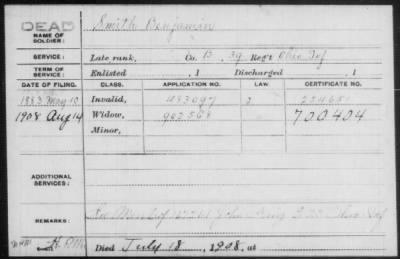 DEAD
NAME OF SOLDIER: Smith Benjamin
SERVICE: Late rank, Co. B, 39 Reg't Ohio Inf
TERM OF SERVICE: Enlisted , 1 Discharged , 1
DATE OF FILING. CLASS. APPLICATION NO. LAW. CERTIFICATE NO.
1883 May 10 Invalid, 483097
1908 Aug 14 Widow, 902568 700404
Minor,
ADDITIONAL SERVICES:
REMARKS: John Ohio Inf
Died July 18, 1908, at